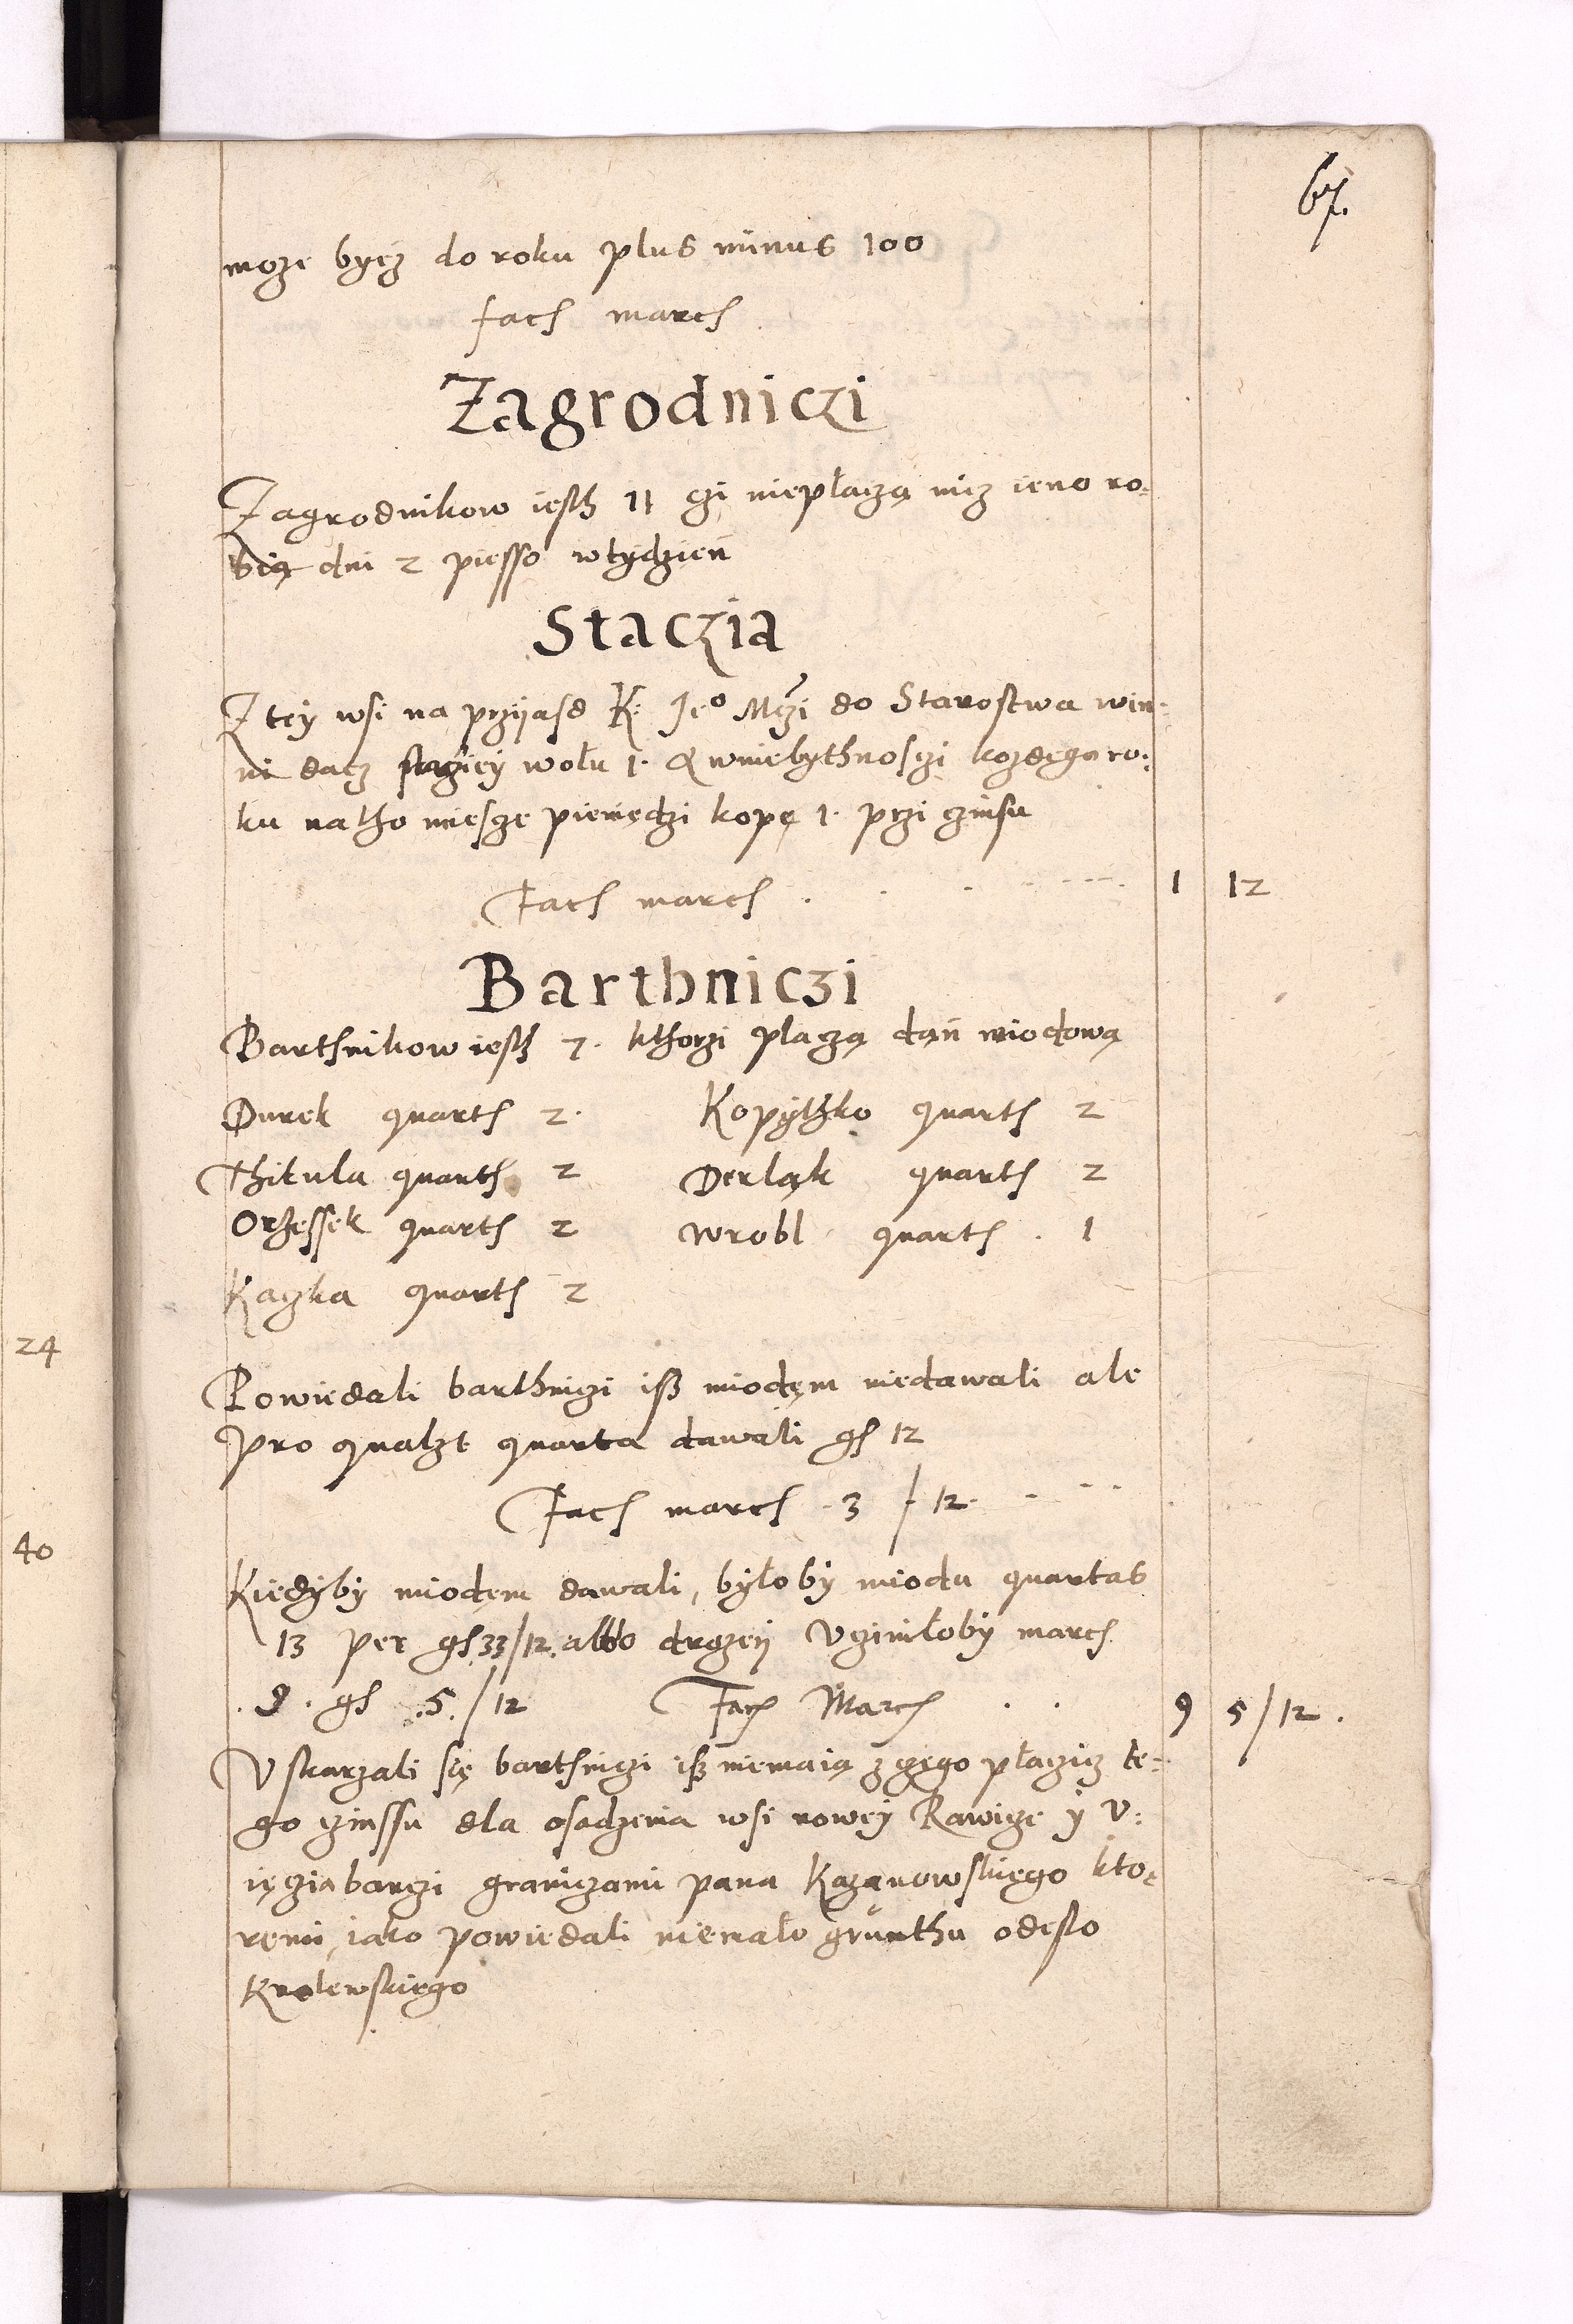 67.
moze bycz do roku plus minus 100
fach march
Zagrodniczi
Zagrodnikow iesth 11 czi nieplaczą nicz ieno ro-
bią dni 2 piesso w tydzień
Staczia
Z tey wsi na przijasd K: Je° Mczi do Starostwa win-
ni dacz staczieÿ wołu 1. & w niebythnosczi kozdego ro:
ku na tho miesce pieniędzi kopę 1. przi czinsu
fach march . . . . 1 12
Barthniczi
Barthnikow iesth 7. kthorzi płaczą dąń miodową
Durek quarth 2. Kopythko quarth 2
Thitula quarth 2 Derląk quarth 2
Orzessek quarth 2 Wrobl quarth . 1
Kaczka quarth 2
Powiedali barthniczi isz miodęm niedawali ale
pro qualzt quarta dawali gs 12
fach march . 3 / 12 . . . .
Kiedÿby miodęm dawali, byłoby miodu quartas
13 per gs 33/12 albo drozeÿ Vcziniłoby march
. 9 . gs . 5. / 12 fach March . . 9 5/12 .
Vskarzali się barthniczi isz niemaią z czego płaczicz te-
go czinssu dla osadzenia wsi nowey Rawicze ÿ v:
ięczia barczi graniczami pana Kazanowskiego kto-
remi, iako powiedali niemało grunthu odeslo
Krolewskiego
24
40